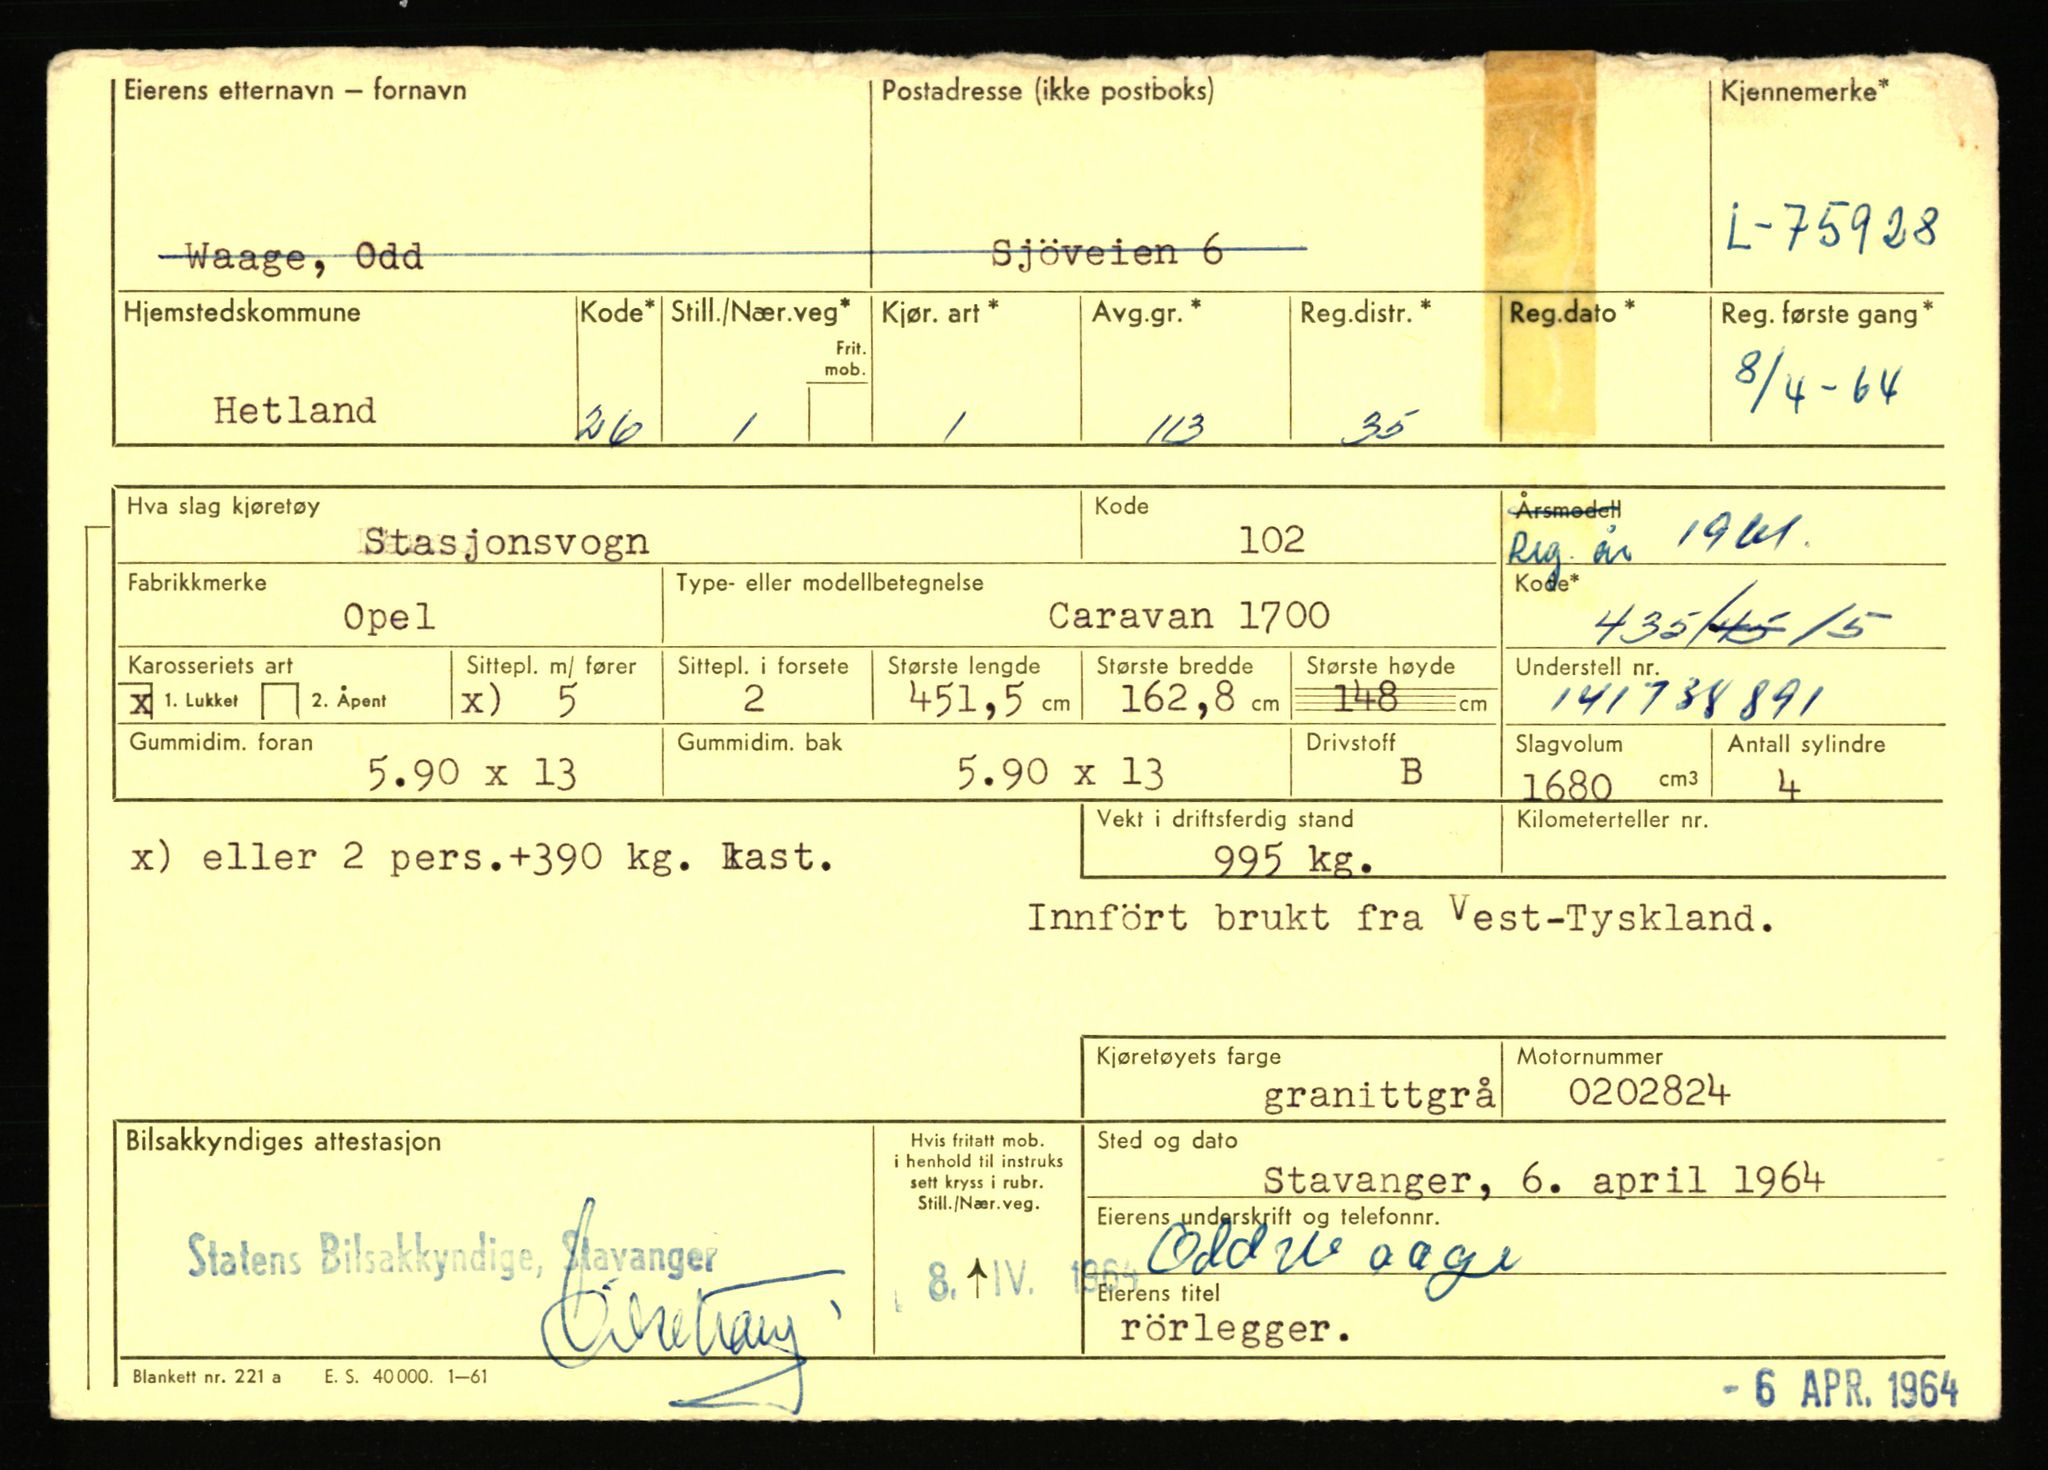 Eierens etternavn – fornavn Postadresse (ikke postboks) Kjennemerke*
Waage, Odd Sjöveien 6 L-75928
Hjemstedskommune Kode* Still./Nær.veg* Kjør. art* Avg.gr.* Reg.distr.* Reg.dato* Reg. første gang*
Frit. mob.
Hetland 26 1 1 113 35 8/4-64
Hva slag kjøretøy Kode Årsmodell
Stasjonsvogn 102 Reg. år 1961.
Fabrikkmerke Type- eller modellbetegnelse Kode*
Opel Caravan 1700 435/45/5
Karosseriets art Sittepl. m/ fører Sittepl. i forsete Største lengde Største bredde Største høyde Understell nr.
x 1. Lukket 2. Åpent x) 5 2 451,5 cm 162,8 cm 148 cm 141738891
Gummidim. foran Gummidim. bak Drivstoff Slagvolum Antall sylindre
5.90 x 13 5.90 x 13 B 1680 cm3 4
Vekt i driftsferdig stand Kilometerteller nr.
x) eller 2 pers.+390 kg. last. 995 kg.
Innfört brukt fra Vest-Tyskland.
Kjøretøyets farge Motornummer
granittgrå 0202824
Bilsakkyndiges attestasjon Hvis fritatt mob. Sted og dato
i henhold til instruks
sett kryss i rubr.
Still./Nær.veg.
Stavanger, 6. april 1964
Eierens underskrift og telefonnr.
Statens Bilsakkyndige, Stavanger Odd Waage
8. ↑ IV. 1964
Eierens titel
rörlegger.
Blankett nr. 221 a E. S. 40000. 1–61
- 6 APR. 1964